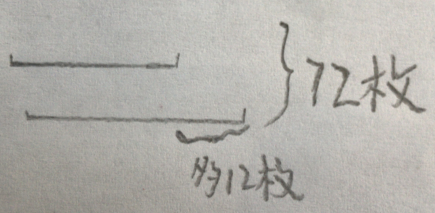 72枚
多12枚